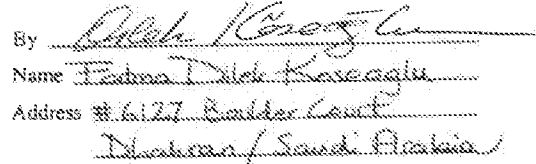 By Dilek Köseoğlu
Name Fatma Dilek Koseoglu
Address # 6127 Boulder Court
Dhahran / Saudi Arabia